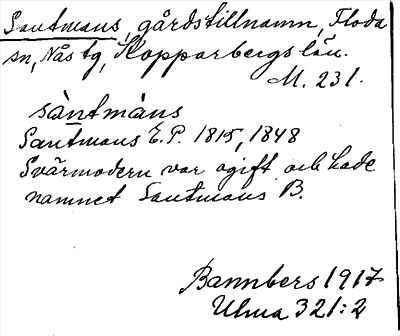 Santmans, gårdstillnamn, Floda
sn, Nås tg, Kopparbergs län.
M. 231.
sàntmàns
Santmans E.P. 1815, 1848
Svärmodern var ogift och hade
namnet Santmans B.
Bannbers 1917
Ulma 321:2